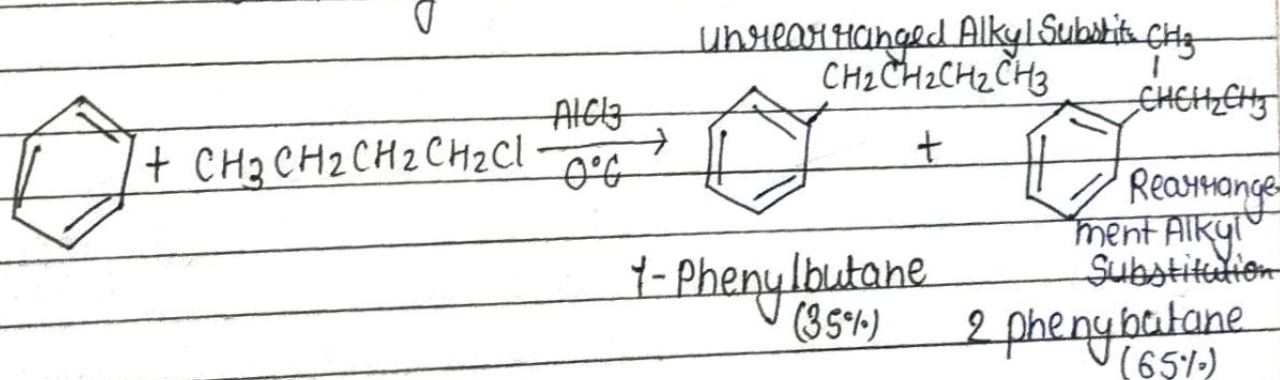 unrearranged Alkyl Substit CH3
CH2CH2CH2CH3
CHCH2CH3
+ CH3CH2CH2CH2Cl AlCl3 0°C +
Rearrange
ment Alkyl
Substitution
1-Phenylbutane
(35%)
2 phenybutane
(65%)